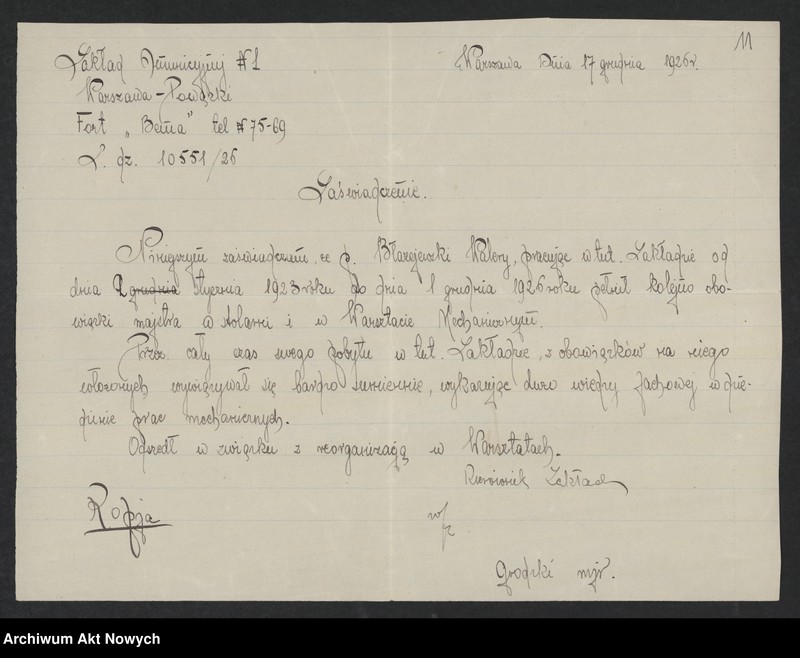 11
Zakład Amunicyjny № 1
Warszawa Dnia 17 grudnia 1926 r.
Warszawa – Powązki
Fort „Bema" tel № 75-69
L. dz. 10551/26
Zaświadczenie.
Niniejszym zaświadczam, że p. Błażejewski Walery, pracując w tut. Zakładzie od
dnia 2 grudnia stycznia 1923 roku do dnia 1 grudnia 1926 roku pełnił kolejno obo-
wiązki majstra w stolarni i w Warsztacie Mechanicznym.
Przez cały czas swego pobytu w tut. Zakładzie, z obowiązków na niego
włożonych wywiązywał się bardzo sumiennie, wykazując dużo wiedzy fachowej w dzie-
dzinie prac mechanicznych.
Odszedł w związku z reorganizacją w Warsztatach.
Kierownik Zakładu
Kopja
wz
Grodzki mjr.
Archiwum Akt Nowych